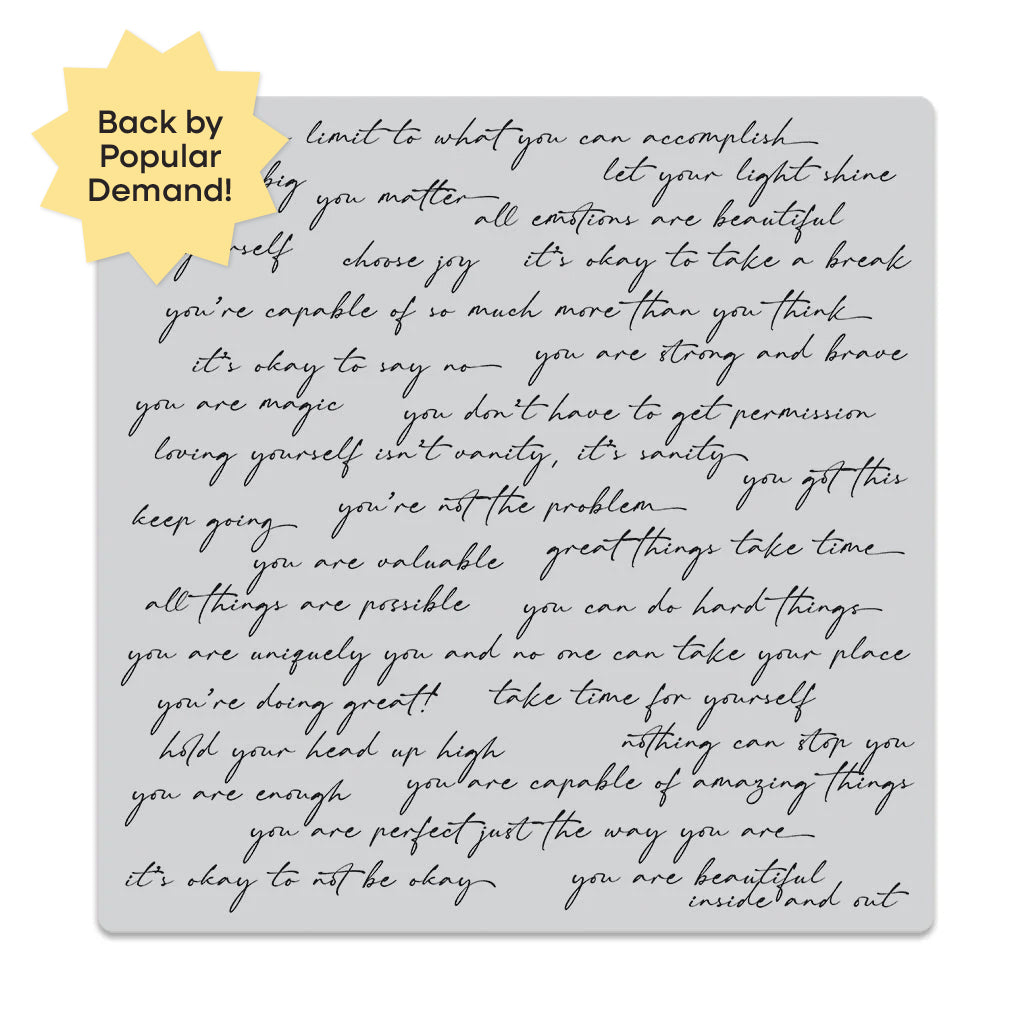 Back by
Popular
Demand!
limit to what you can accomplish
let your light shine
big
you matter
all emotions are beautiful
choose joy
it's okay to take a break
you're capable of so much more than you think
you are strong and brave
it's okay to say no
you are magic
you don't have to get permission
loving yourself isn't vanity, it's sanity
you got this
keep going
you're not the problem
you are valuable
great things take time
all things are possible
you can do hard things
you are uniquely you and no one can take your place
you're doing great!
take time for yourself
hold your head up high
nothing can stop you
you are enough
you are capable of amazing things
you are perfect just the way you are
it's okay to not be okay
you are beautiful
inside and out